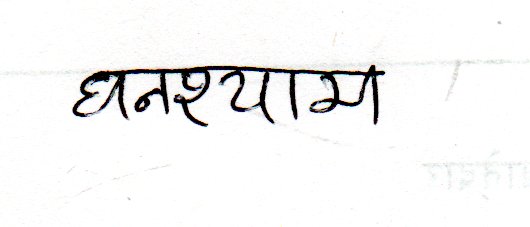 घनश्याम